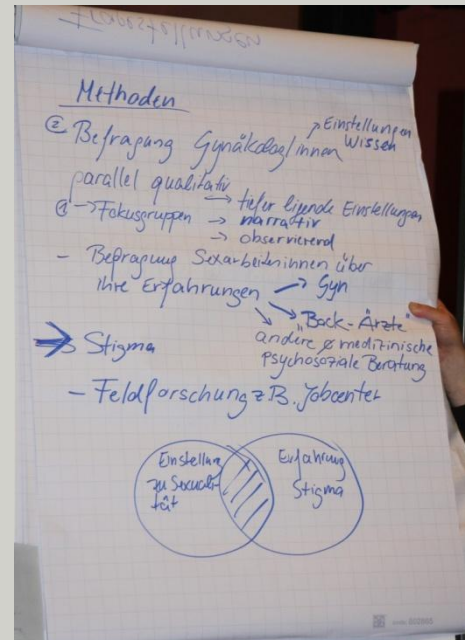 Fragestellungen
Methoden
② Befragung Gynäkolog/innen ↗ Einstellungen
Wissen
parallel qualitativ → tiefer ligende Einstellungen
① → Fokusgruppen → narrativ
→ observierend
- Befragung Sexarbeiterinnen über
ihre Erfahrungen → Gyn
"Bock-Ärzte"
andere ø medizinische
psychosoziale Beratung
→ Stigma
- Feldforschung z.B. Jobcenter
Einstellung
zu Sexuali-
tät
Erfahrung
Stigma